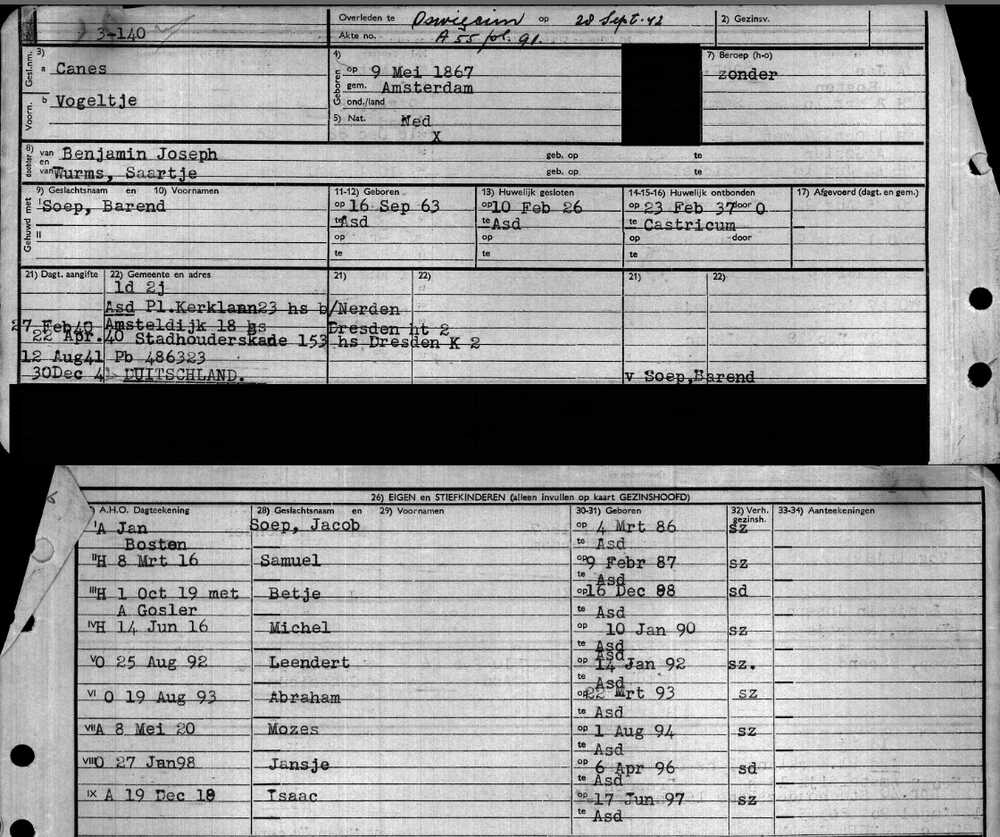 3-140
Overleden te Oswiecim op 28 Sept. 42
Akte no. A 55 fol. 91.
2) Gezinsv.
Gesl.nm. 3) a Canes
Voorn. b Vogeltje
4) Geboren op 9 Mei 1867
gem. Amsterdam
ond./land
5) Nat. Ned
X
7) Beroep (h-o)
zonder
8) van Benjamin Joseph geb. op te
en
van Wurms, Saartje geb. op te
Gehuwd met
9) Geslachtsnaam en 10) Voornamen
I Soep, Barend
II
11-12) Geboren
op 16 Sep 63
te Asd
op
te
13) Huwelijk gesloten
op 10 Feb 26
te Asd
op
te
14-15-16) Huwelijk ontbonden
op 23 Feb 37 door O
te Castricum
op door
te
17) Afgevoerd (dagt. en gem.)
21) Dagt. aangifte 22) Gemeente en adres 21) 22) 21) 22)
ld 2j
Asd Pl.Kerklaan23 hs b/Nerden
27 Feb40 Amsteldijk 18 hs Dresden ht 2
22 Apr.40 Stadhouderskade 153 hs Dresden K 2
12 Aug41 Pb 486323
30Dec 41 DUITSCHLAND. v Soep,Barend
26) EIGEN en STIEFKINDEREN (alleen invullen op kaart GEZINSHOOFD)
A.H.O. Dagteekening 28) Geslachtsnaam en 29) Voornamen 30-31) Geboren 32) Verh. gezinsh. 33-34) Aanteekeningen
I A Jan Soep, Jacob op 4 Mrt 86 sz
Bosten te Asd
II H 8 Mrt 16 Samuel op 9 Febr 87 sz
te Asd
III H 1 Oct 19 met Betje op 16 Dec 88 sd
A Gosler te Asd
IV H 14 Jun 16 Michel op 10 Jan 90 sz
te Asd
Asd
V O 25 Aug 92 Leendert op 14 Jan 92 sz.
te Asd
VI O 19 Aug 93 Abraham op 22 Mrt 93 sz
te Asd
VII A 8 Mei 20 Mozes op 1 Aug 94 sz
te Asd
VIII O 27 Jan98 Jansje op 6 Apr 96 sd
te Asd
IX A 19 Dec 18 Isaac op 17 Jun 97 sz
te Asd